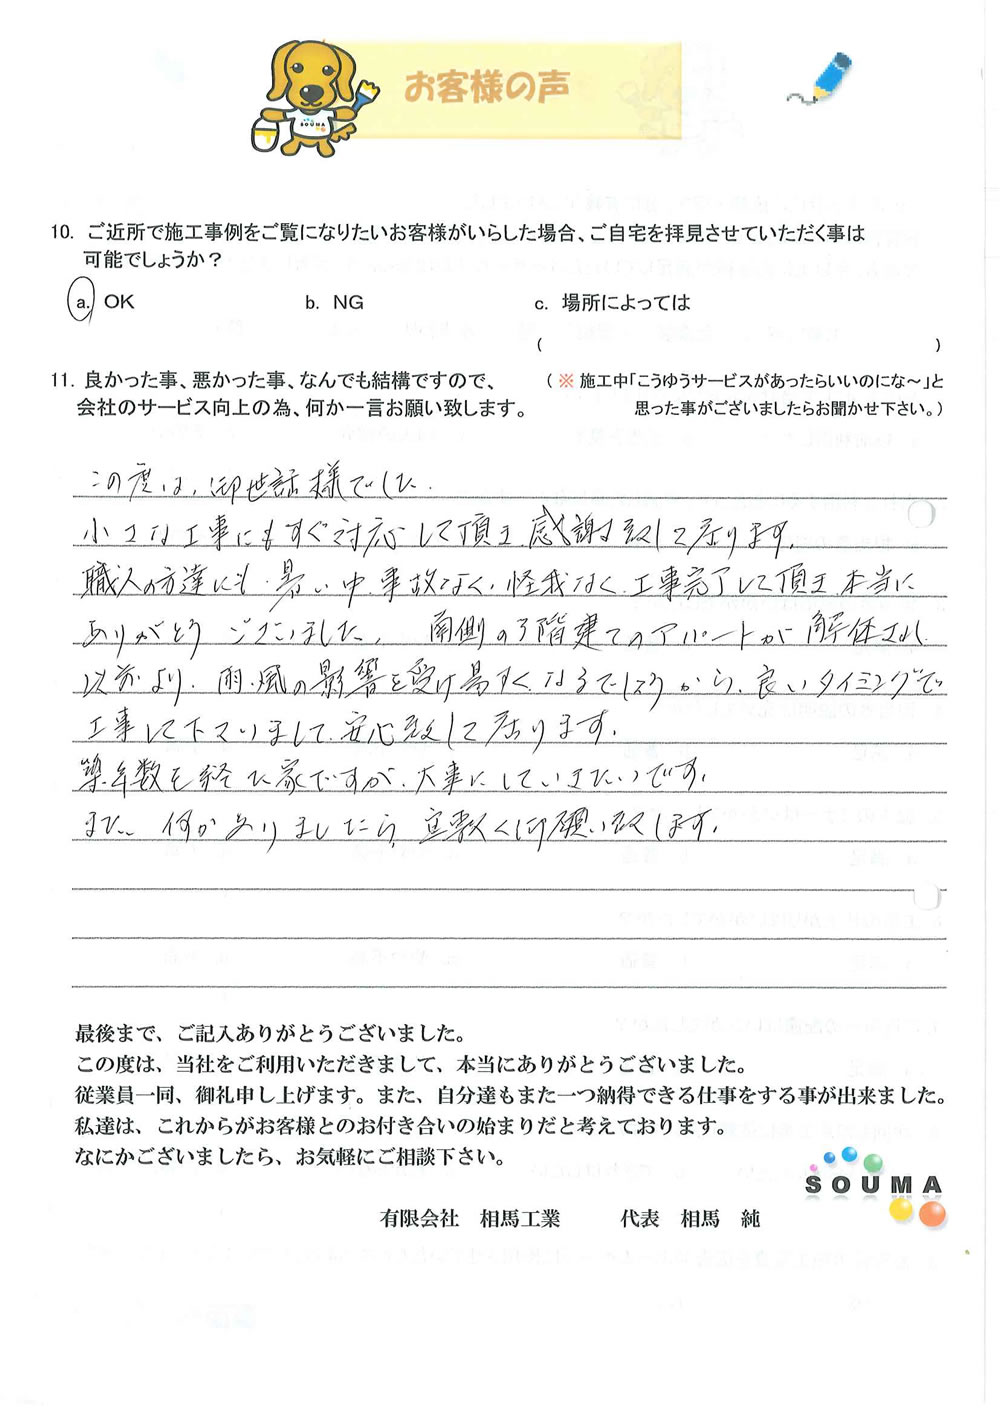 お客様の声
SOUMA
10. ご近所で施工事例をご覧になりたいお客様がいらした場合、ご自宅を拝見させていただく事は
可能でしょうか？
a. OK b. NG c. 場所によっては
( )
11. 良かった事、悪かった事、なんでも結構ですので、 (※ 施工中「こうゆうサービスがあったらいいのにな～」と
会社のサービス向上の為、何か一言お願い致します。 思った事がございましたらお聞かせ下さい。)
この度は、御世話様でした.
小さな工事にもすぐ対応して頂き 感謝致して居ります.
職人の方達にも、暑い中、事故なく、怪我なく、工事完了して頂き、本当に
ありがとう ございました。 南側の3階建てのアパートが解体され
以前より、雨、風の影響を受け易すくなるでしょうから、良いタイミングで
工事して下さいまして、安心致して居ります.
築年数を経た家ですが、大事にしていきたいです.
また、何かありましたら、宜敷く御願い致します.
最後まで、ご記入ありがとうございました。
この度は、当社をご利用いただきまして、本当にありがとうございました。
従業員一同、御礼申し上げます。また、自分達もまた一つ納得できる仕事をする事が出来ました。
私達は、これからがお客様とのお付き合いの始まりだと考えております。
なにかございましたら、お気軽にご相談下さい。
SOUMA
有限会社 相馬工業 代表 相馬 純